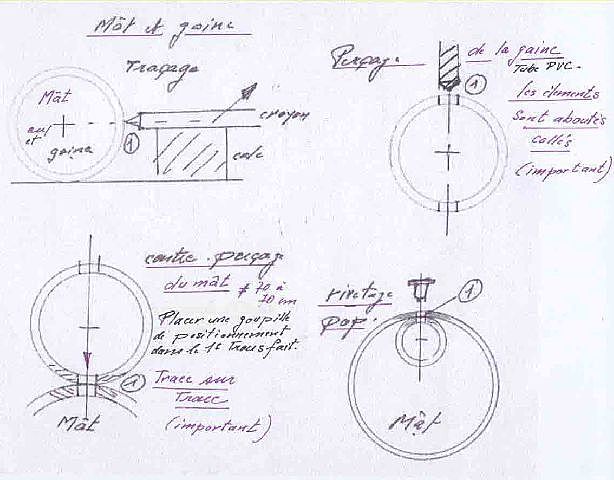 Mât et gaine
Traçage
Mât
et
gaine
1
crayon
cale
Perçage
de la gaine
Tube PVC.
1
les éléments
sont aboutés
collés
(important)
contre-perçage
du mât
≠ 70 à
Placer une goupille
de positionnement
dans le 1er trous fait.
1
Trace sur
Trace
(important)
Mât
rivetage
pop.
1
Mât